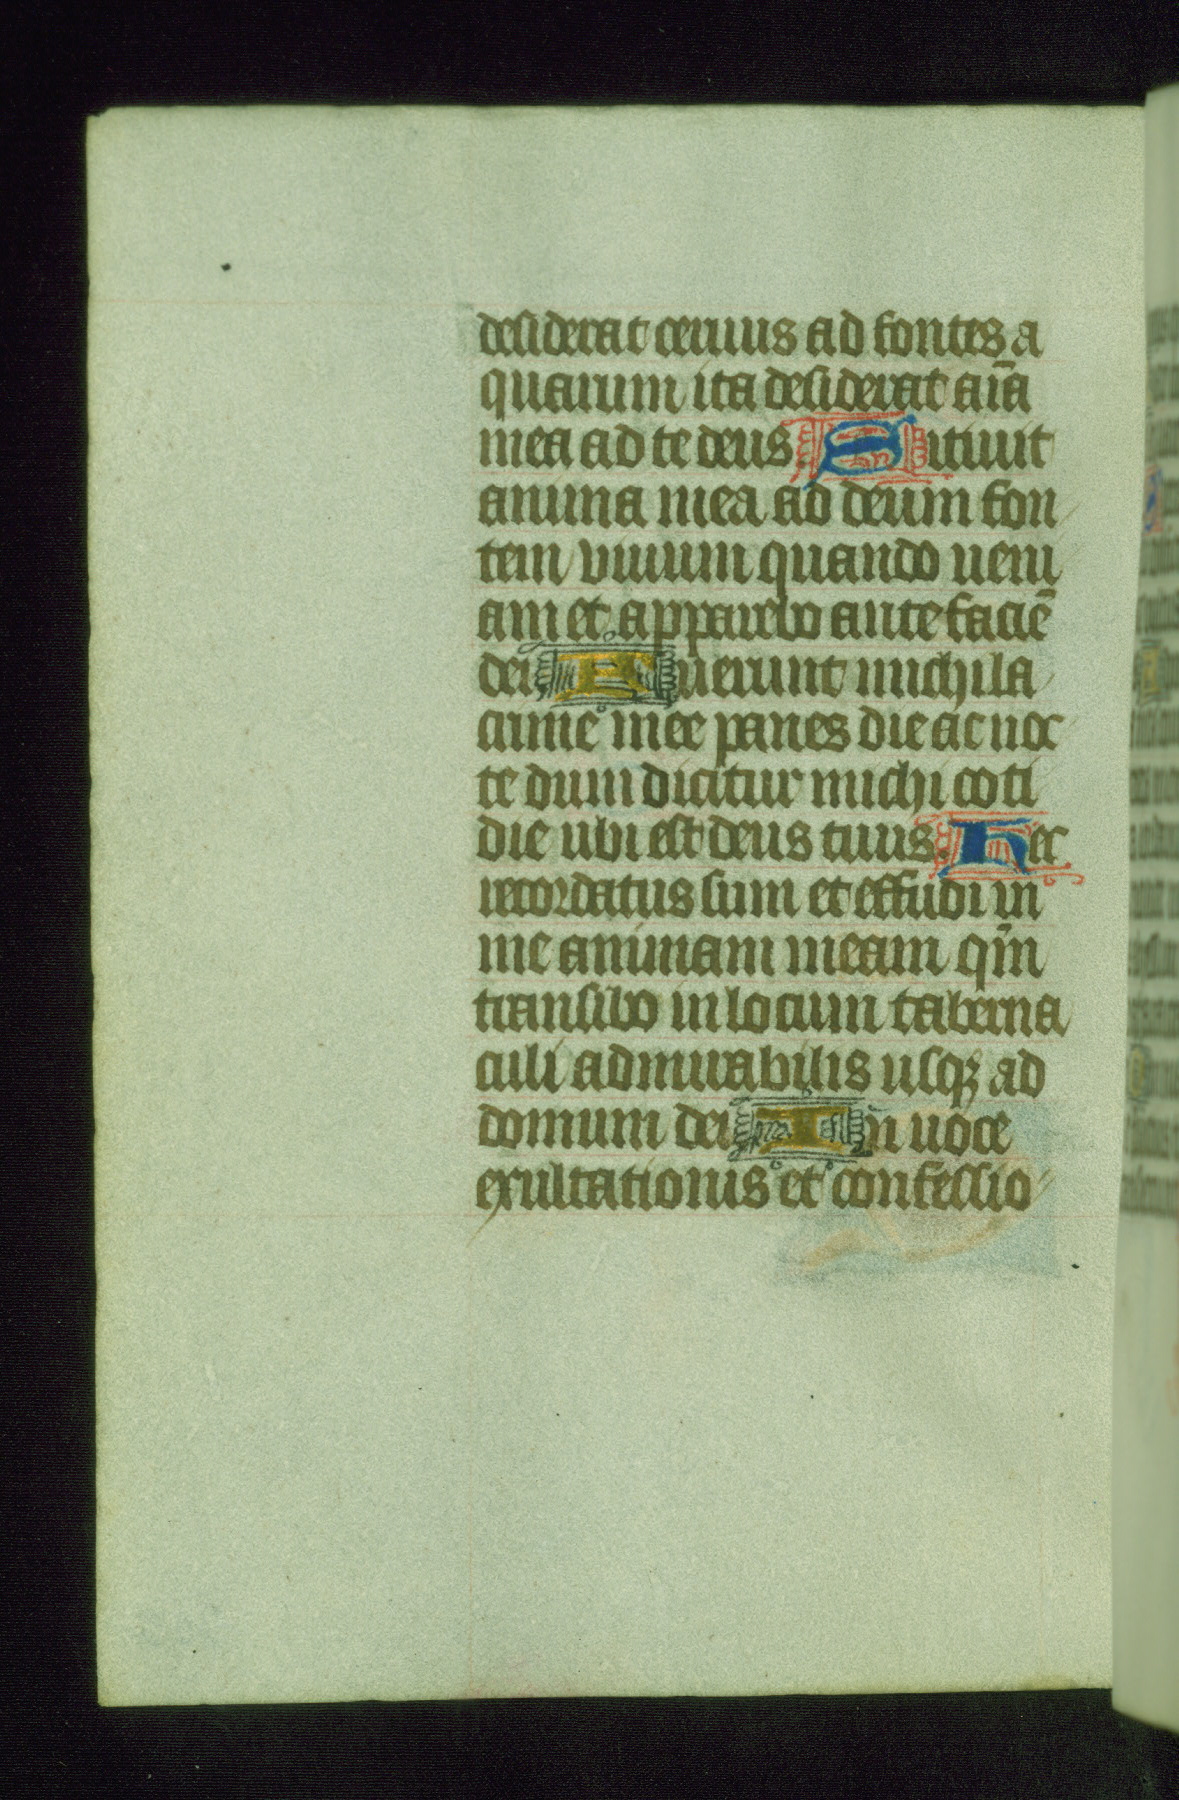 desiderat ceruus ad fontes a
quarum ita desiderat aīa
mea ad te deus. Sitiuit
anima mea ad deum fon
tem viuum quando ueni
am et apparebo ante faciē
dei. Fuerunt michi la
crime mee panes die ac noc
te dum dicitur michi coti
die ubi est deus tuus. Hec
recordatus sum et effudi in
me animam meam qm̄
transibo in locum taberna
culi admirabilis usqꝫ ad
domum dei. In uoce
exultationis et confessio